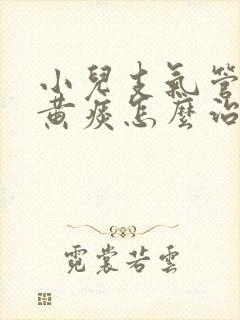 小兒支氣管
黃痰怎麼治
霓裳若雲